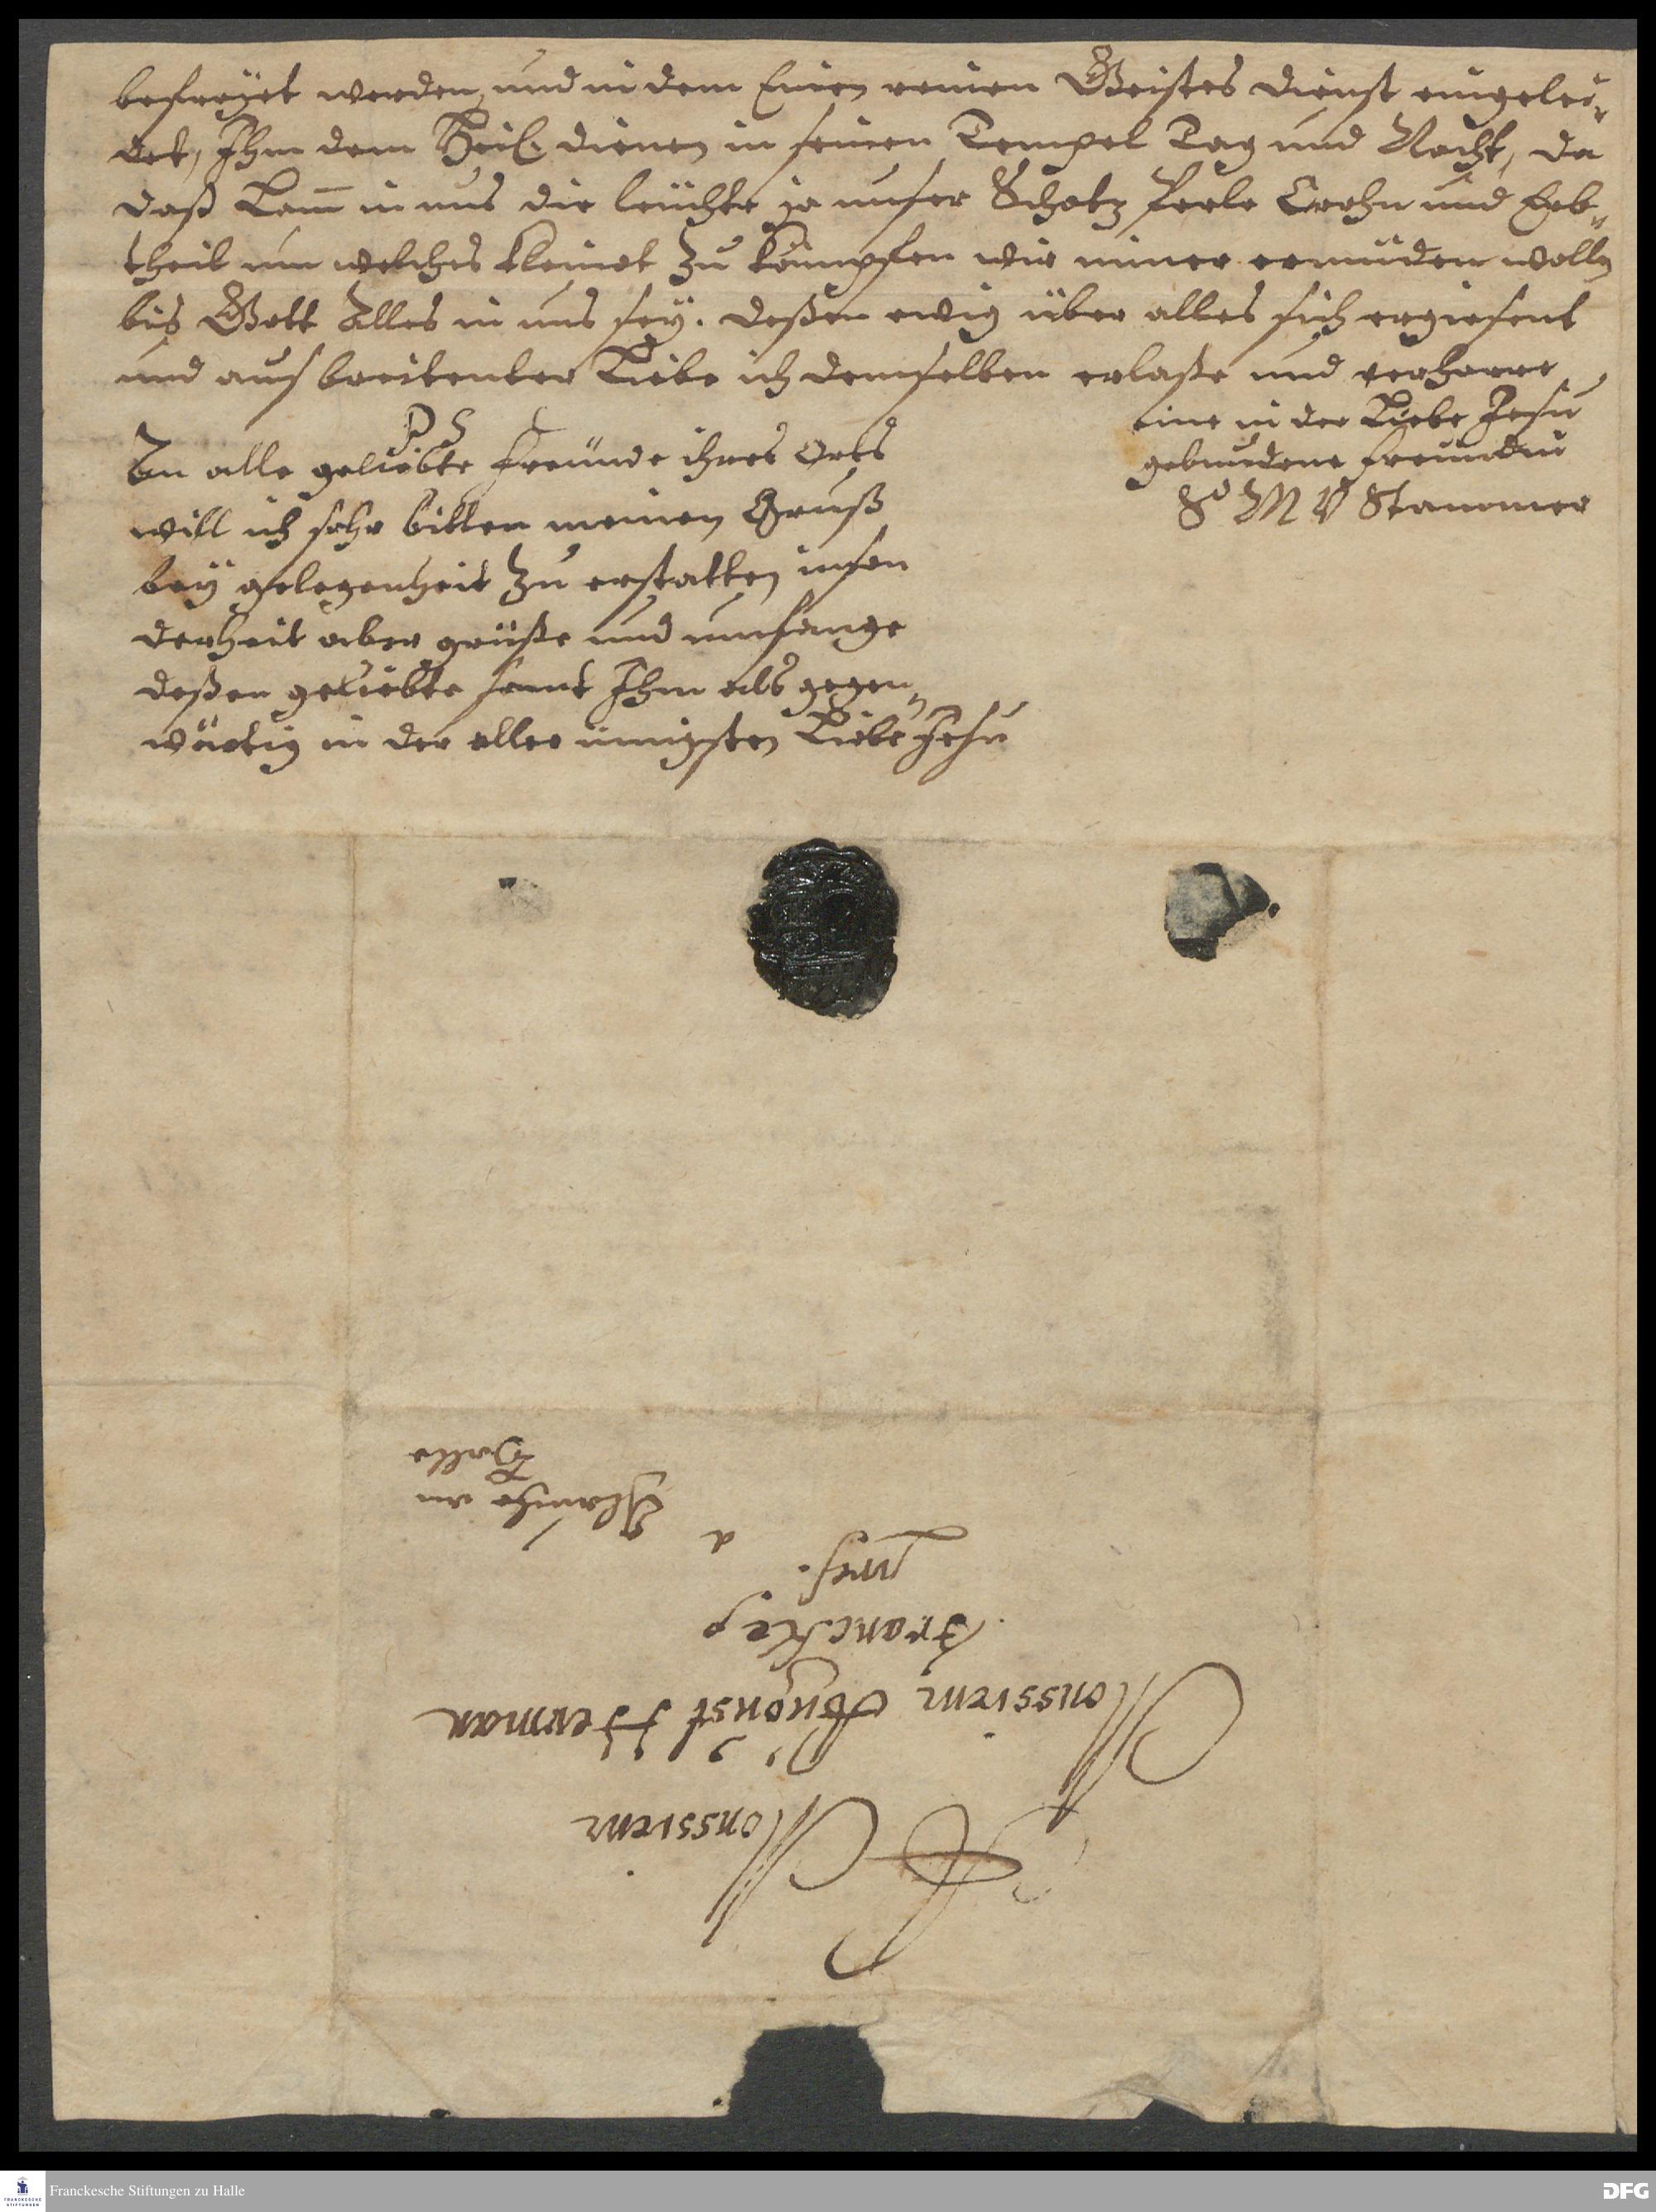 befreyet werden, und in dem Einen reinen Geistes dienst eingelei-
det, Ihm dem Heil. dienen in seinen Tempel Tag und Nacht, da
daß Lam̅ in uns die leüchte ja unser Schatz Perle Crohn und Erb-
theil um welches kleinot zu kämpffen wir nimer ermüden wolln
bis Gott Alles in uns sey. deßen ewig über alles sich ergiesent
und aus breitenter Liebe ich demselben erlaße und verharre
eine in der Liebe Jesu
gebundene freundin
S M V Stammer
PS
An alle geliebte freünde ihres Orts
will ich sehr bitten meinen Gruß
bey gelegenheit zu erstatten inson
derheit aber grüße und umfange
deßen geliebte samt Ihm als gegen-
wärtig in der aller innigsten Liebe Jesu
A Monssieur
Monssieur August Herman
Francke
prof.
a Glaucha an
Halle
Franckesche Stiftungen zu Halle
DFG
FRANCKESCHE
STIFTUNGEN